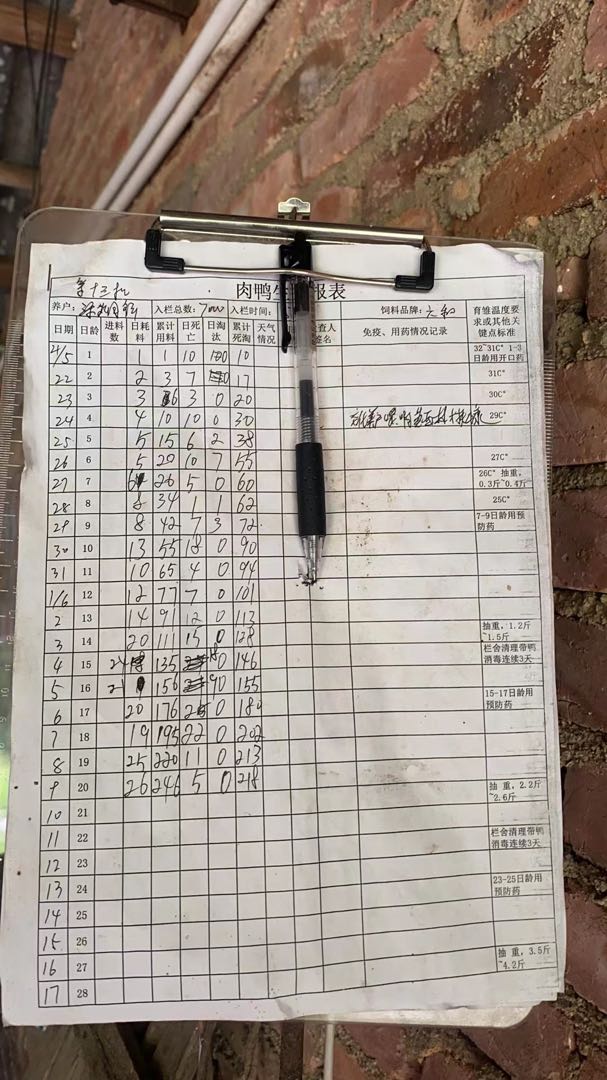 第十三批
肉鸭生 报表
养户: 入栏总数:7000 入栏时间: 饲料品牌:六和 育雏温度要求或其他关键点标准
日期 日龄 进料数 日耗料 累计用料 日死亡 日淘汰 累计死淘 天气情况 查人签名 免疫、用药情况记录
1 1 1 10 0 10 32~31C° 1-3日龄用开口药
22 2 2 3 7 0 17 31C°
23 3 3 6 3 0 20 30C°
24 4 4 10 10 0 30 29C°
25 5 5 15 6 2 38
26 6 5 20 10 7 55 27C°
27 7 6 26 5 0 60 26C° 抽重,0.3斤~0.4斤
28 8 8 34 1 1 62 25C°
29 9 8 42 7 3 72 7-9日龄用预防药
30 10 13 55 18 0 90
31 11 10 65 4 0 94
1/6 12 12 77 7 0 101
2 13 14 91 12 0 113
3 14 20 111 15 0 128 抽重,1.2斤~1.5斤
4 15 24 135 18 0 146 栏舍清理带鸭消毒连续3天
5 16 21 156 9 0 155
6 17 20 176 25 0 180 15-17日龄用预防药
7 18 19 195 22 0 202
8 19 25 220 11 0 213
9 20 26 246 5 0 218 抽重,2.2斤~2.6斤
10 21
11 22 栏舍清理带鸭消毒连续3天
12 23
13 24 23-25日龄用预防药
14 25
15 26
16 27 抽重,3.5斤~4.2斤
17 28